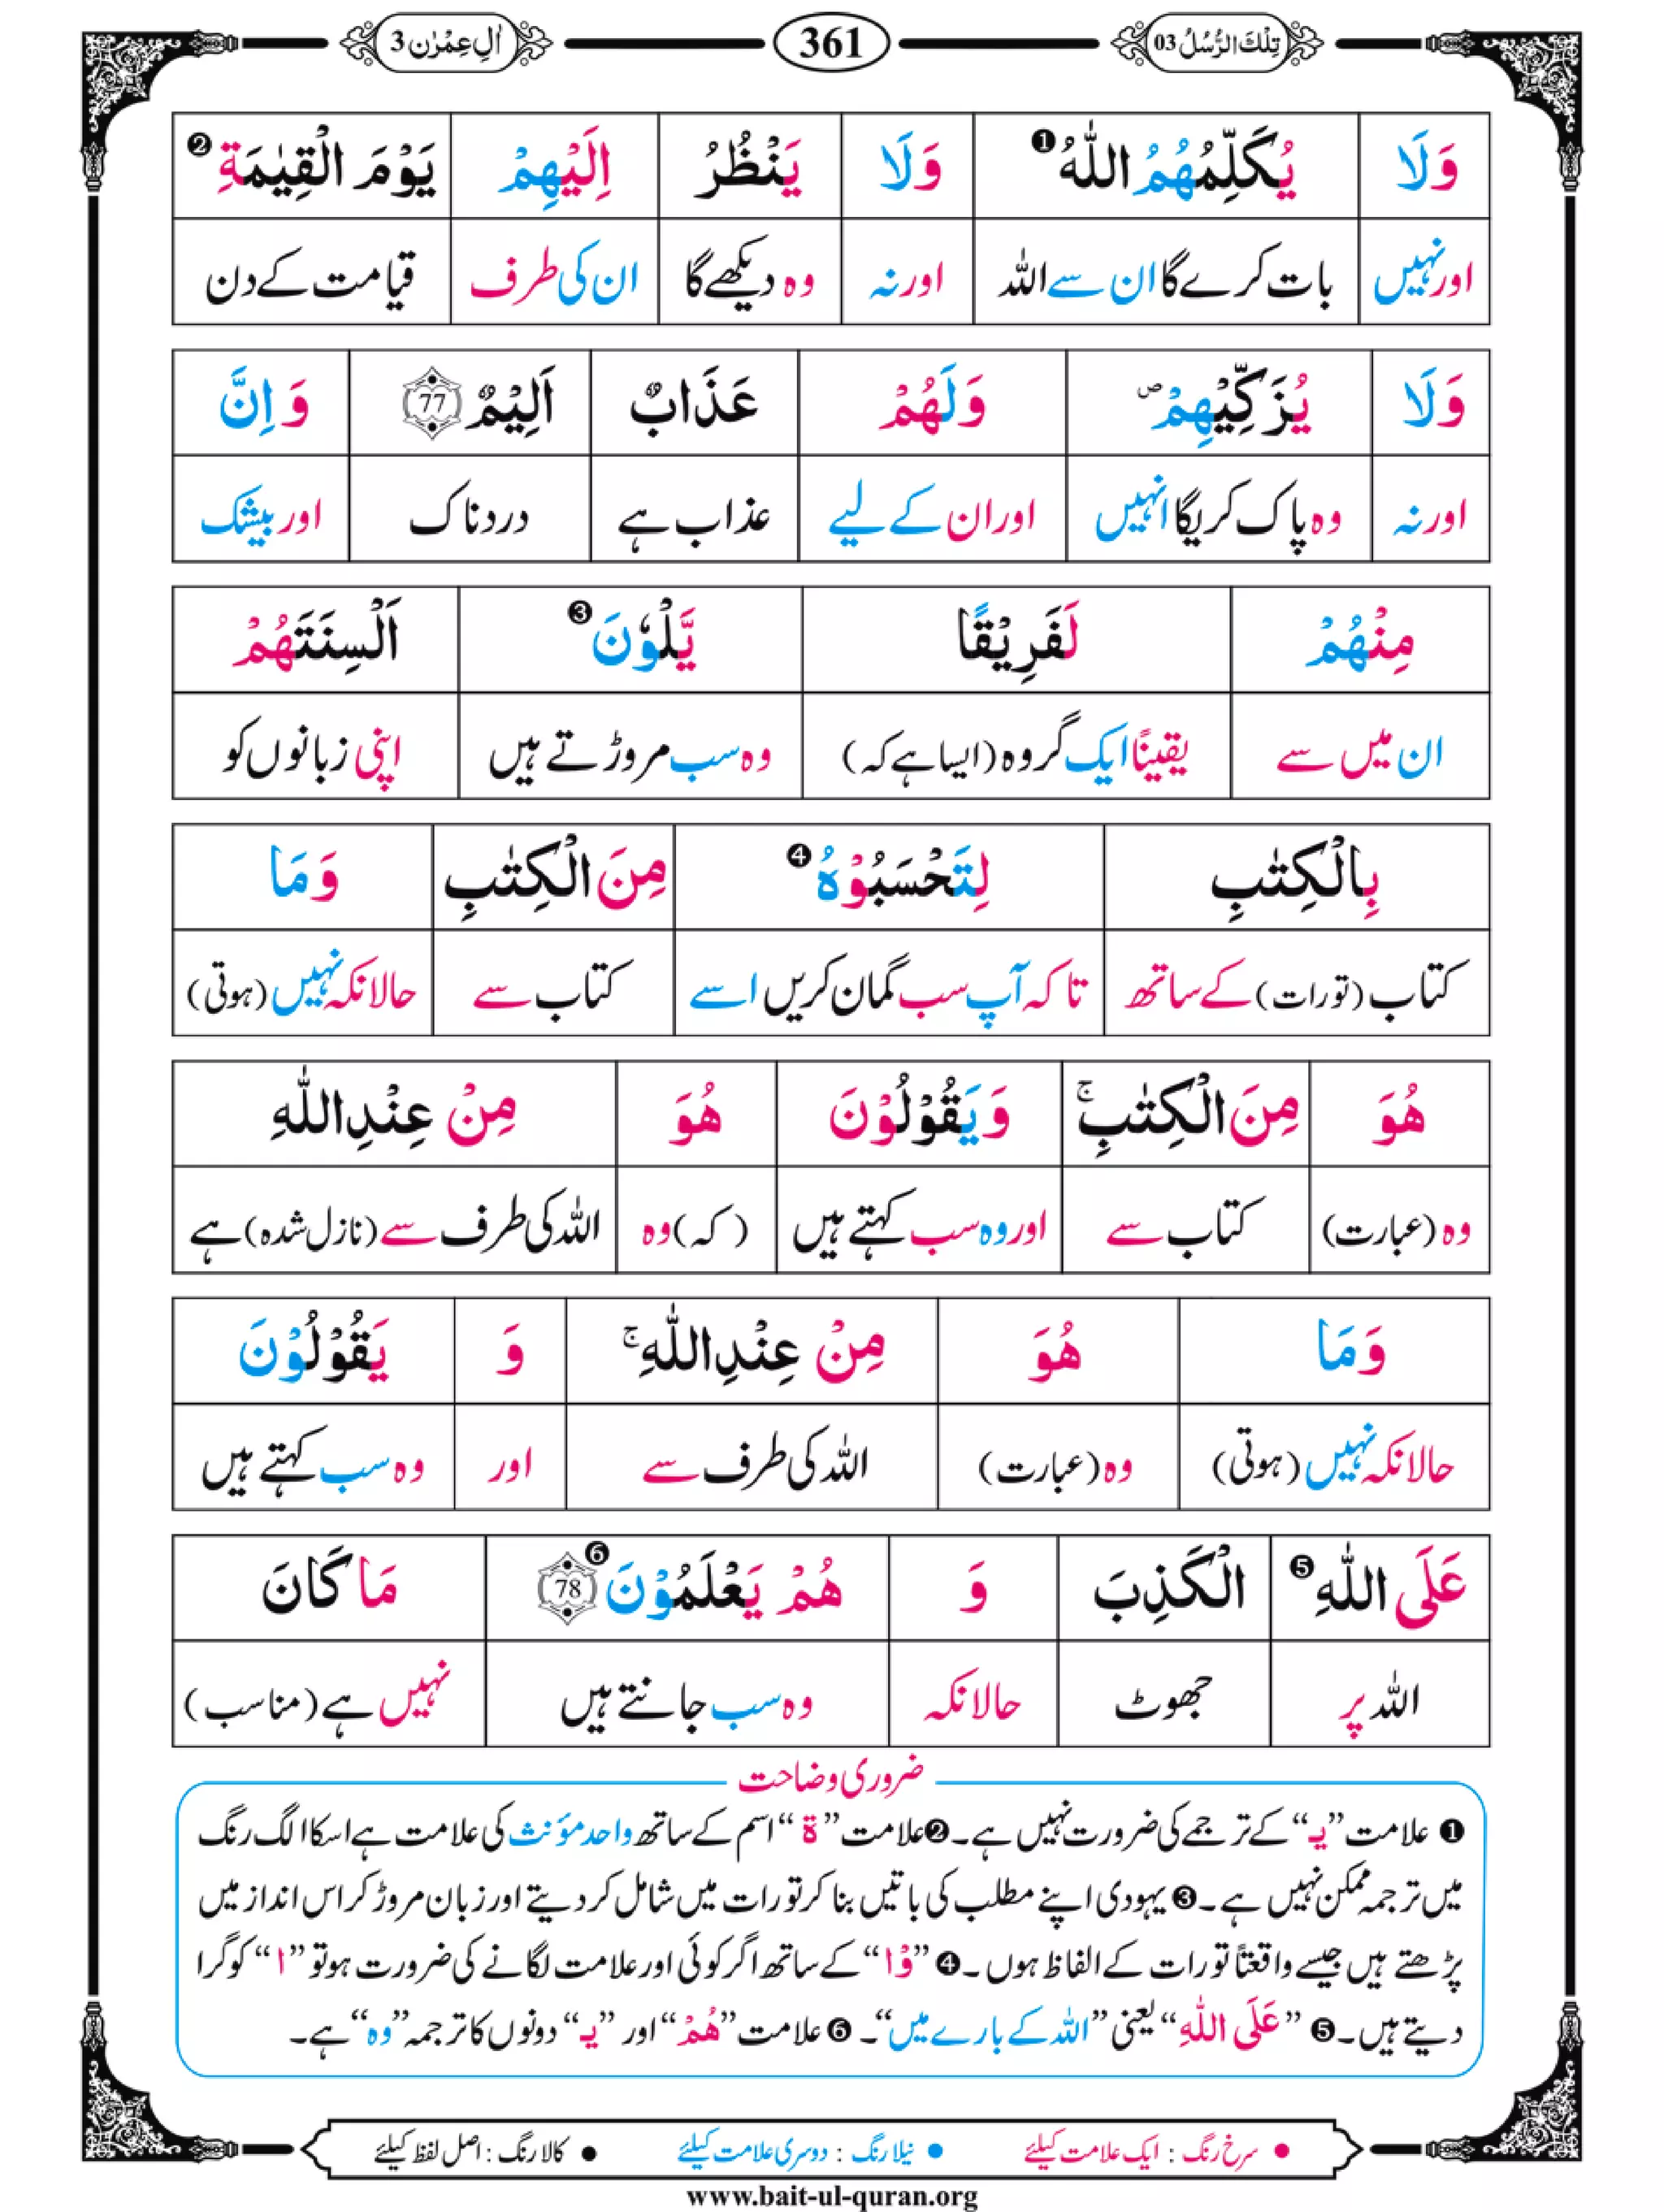 تِلْكَ الرُّسُلُ 03 361 اٰلِ عِمْرٰن 3
وَلَا يُكَلِّمُهُمُ اللّٰهُ ❶ وَلَا يَنْظُرُ اِلَيْهِمْ يَوْمَ الْقِيٰمَةِ ❷
اور نہیں بات کرے گا ان سے اللہ اور نہ وہ دیکھے گا ان کی طرف قیامت کے دن
وَلَا يُزَكِّيْهِمْ ۖ وَلَهُمْ عَذَابٌ اَلِيْمٌ 77 وَاِنَّ
اور نہ وہ پاک کریگا انہیں اور ان کے لیے عذاب ہے دردناک اور بیشک
مِنْهُمْ لَفَرِيْقًا يَّلْوٗنَ ❸ اَلْسِنَتَهُمْ
ان میں سے یقیناً ایک گروہ (ایسا ہے کہ) وہ سب مروڑتے ہیں اپنی زبانوں کو
بِالْكِتٰبِ لِتَحْسَبُوْهُ ❹ مِنَ الْكِتٰبِ وَمَا
کتاب (تورات) کے ساتھ تاکہ آپ سب گمان کریں اسے کتاب سے حالانکہ نہیں (ہوتی)
هُوَ مِنَ الْكِتٰبِ ۚ وَيَقُوْلُوْنَ هُوَ مِنْ عِنْدِ اللّٰهِ
وہ (عبارت) کتاب سے اور وہ سب کہتے ہیں (کہ) وہ اللہ کی طرف سے (نازل شدہ) ہے
وَمَا هُوَ مِنْ عِنْدِ اللّٰهِ ۚ وَ يَقُوْلُوْنَ
حالانکہ نہیں (ہوتی) وہ (عبارت) اللہ کی طرف سے اور وہ سب کہتے ہیں
عَلَى اللّٰهِ ❺ الْكَذِبَ وَ هُمْ يَعْلَمُوْنَ ❻ 78 مَا كَانَ
اللہ پر جھوٹ حالانکہ وہ سب جانتے ہیں نہیں ہے (مناسب)
ضروری وضاحت
❶ علامت ”یـ“ کے ترجمے کی ضرورت نہیں ہے۔ ❷ علامت ”ة“ اسم کے ساتھ واحد مؤنث کی علامت ہے اسکا الگ رنگ
میں ترجمہ ممکن نہیں ہے۔ ❸ یہودی اپنے مطلب کی باتیں بنا کر تورات میں شامل کر دیتے اور زبان مروڑ کر اس انداز میں
پڑھتے ہیں جیسے واقعتاً تورات کے الفاظ ہوں۔ ❹ ”وْا“ کے ساتھ اگر کوئی اور علامت لگانے کی ضرورت ہو تو ”ا“ کو گرا
دیتے ہیں۔ ❺ ”عَلَى اللّٰهِ“ یعنی ”اللہ کے بارے میں“۔ ❻ علامت ”هُمْ“ اور ”یـ“ دونوں کا ترجمہ ”وہ“ ہے۔
● سرخ رنگ : ایک علامت کیلئے ● نیلا رنگ : دوسری علامت کیلئے ● کالا رنگ : اصل لفظ کیلئے
www.bait-ul-quran.org